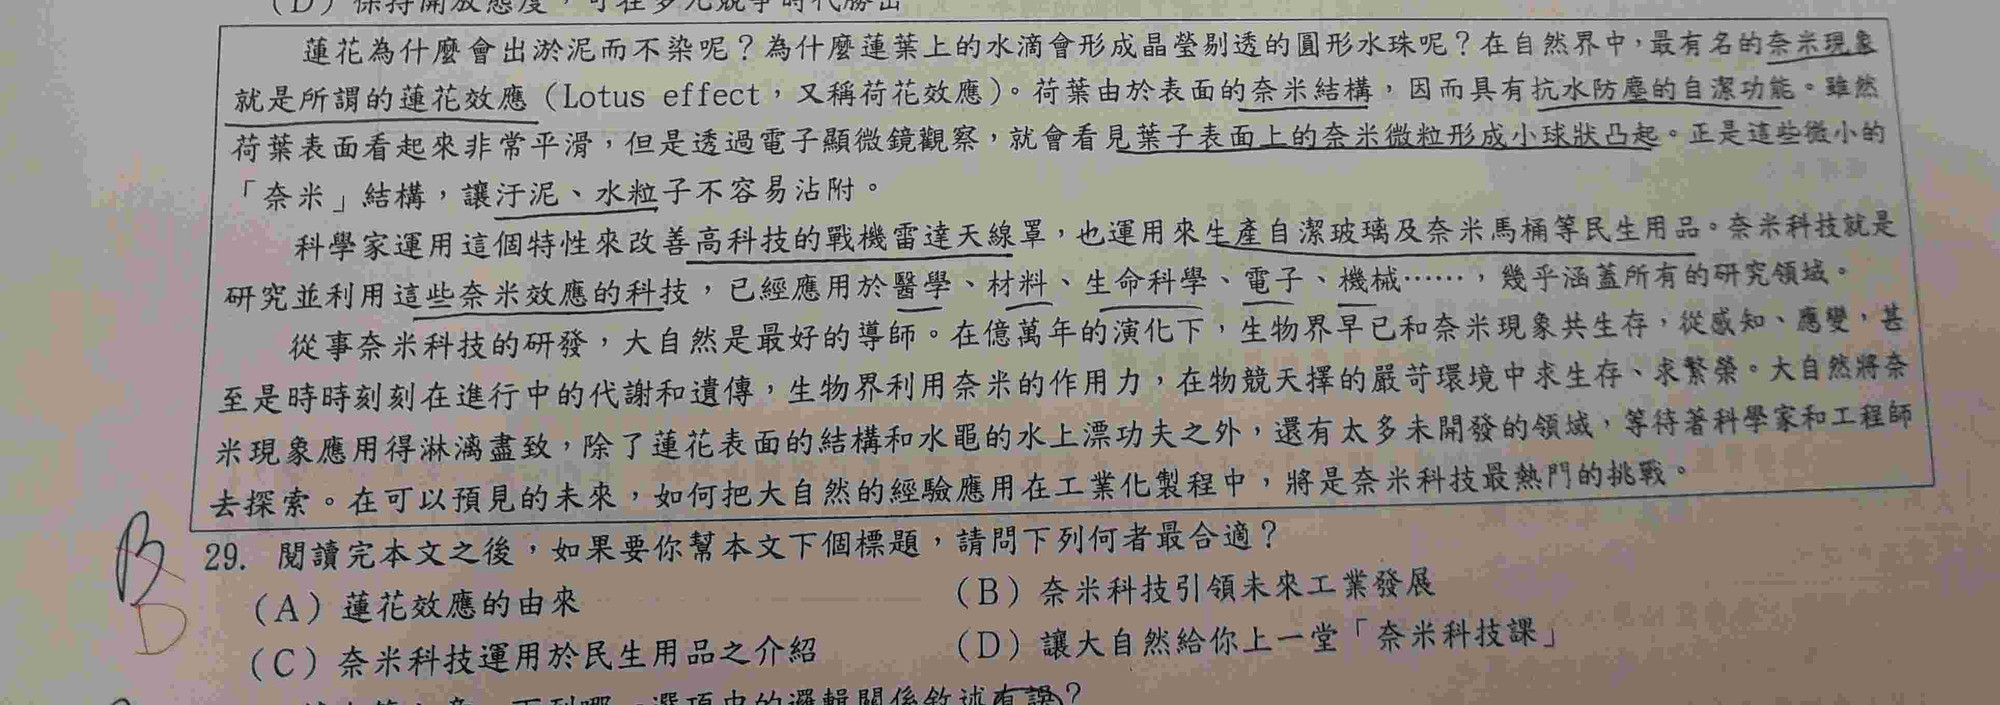 (D) 保持開放態度，可在多元競爭時代勝出
蓮花為什麼會出淤泥而不染呢？為什麼蓮葉上的水滴會形成晶瑩剔透的圓形水珠呢？在自然界中，最有名的奈米現象
就是所謂的蓮花效應（Lotus effect，又稱荷花效應）。荷葉由於表面的奈米結構，因而具有抗水防塵的自潔功能。雖然
荷葉表面看起來非常平滑，但是透過電子顯微鏡觀察，就會看見葉子表面上的奈米微粒形成小球狀凸起。正是這些微小的
「奈米」結構，讓汙泥、水粒子不容易沾附。
科學家運用這個特性來改善高科技的戰機雷達天線罩，也運用來生產自潔玻璃及奈米馬桶等民生用品。奈米科技就是
研究並利用這些奈米效應的科技，已經應用於醫學、材料、生命科學、電子、機械……，幾乎涵蓋所有的研究領域。
從事奈米科技的研發，大自然是最好的導師。在億萬年的演化下，生物界早已和奈米現象共生存，從感知、應變，甚
至是時時刻刻在進行中的代謝和遺傳，生物界利用奈米的作用力，在物競天擇的嚴苛環境中求生存、求繁榮。大自然將奈
米現象應用得淋漓盡致，除了蓮花表面的結構和水黽的水上漂功夫之外，還有太多未開發的領域，等待著科學家和工程師
去探索。在可以預見的未來，如何把大自然的經驗應用在工業化製程中，將是奈米科技最熱門的挑戰。
B
D
29. 閱讀完本文之後，如果要你幫本文下個標題，請問下列何者最合適？
(A) 蓮花效應的由來
(B) 奈米科技引領未來工業發展
(C) 奈米科技運用於民生用品之介紹
(D) 讓大自然給你上一堂「奈米科技課」
下列哪一選項中的邏輯關係敘述有誤？